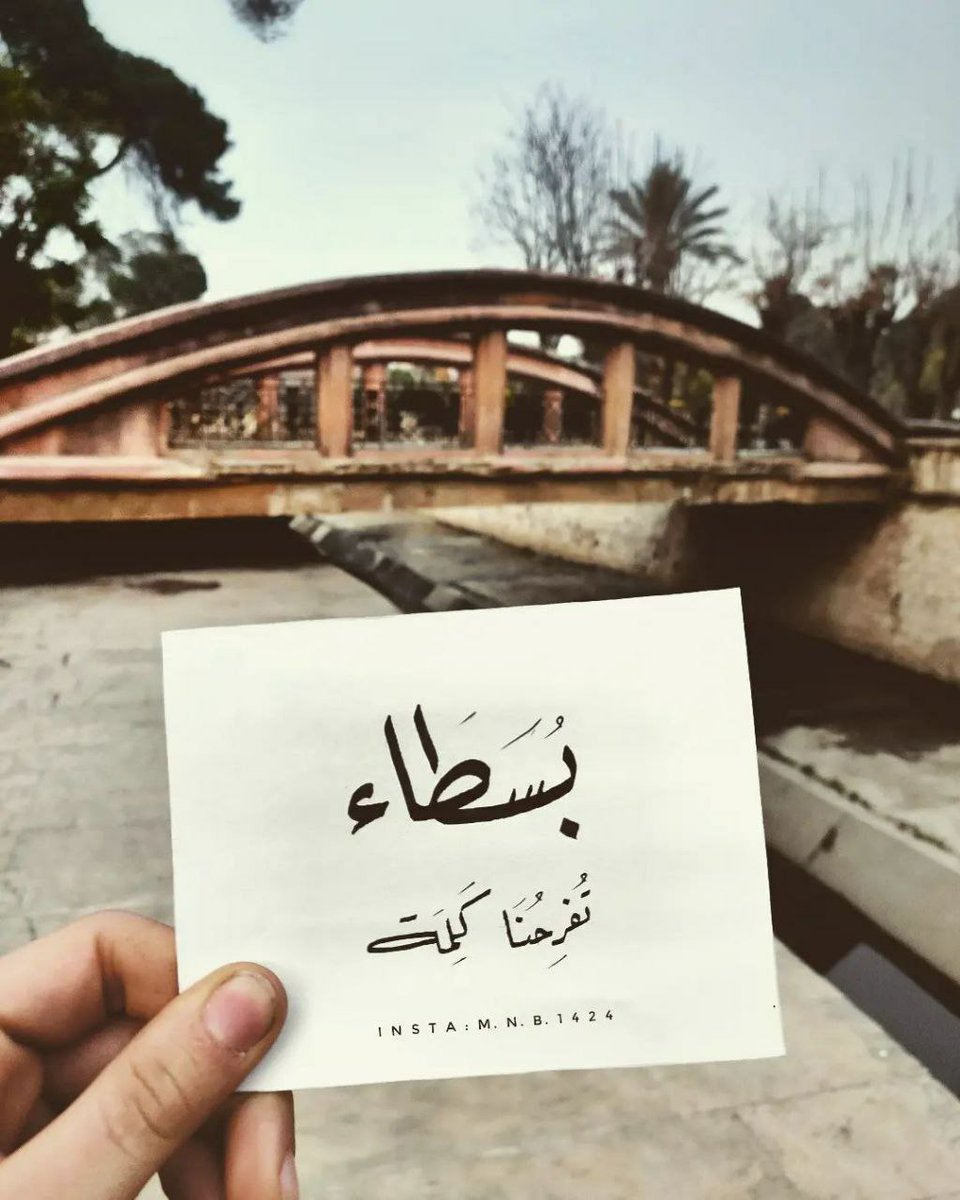 بُسَطَاء
تُفرِحُنَا كَلِمَة
INSTA:M.N.B.1424